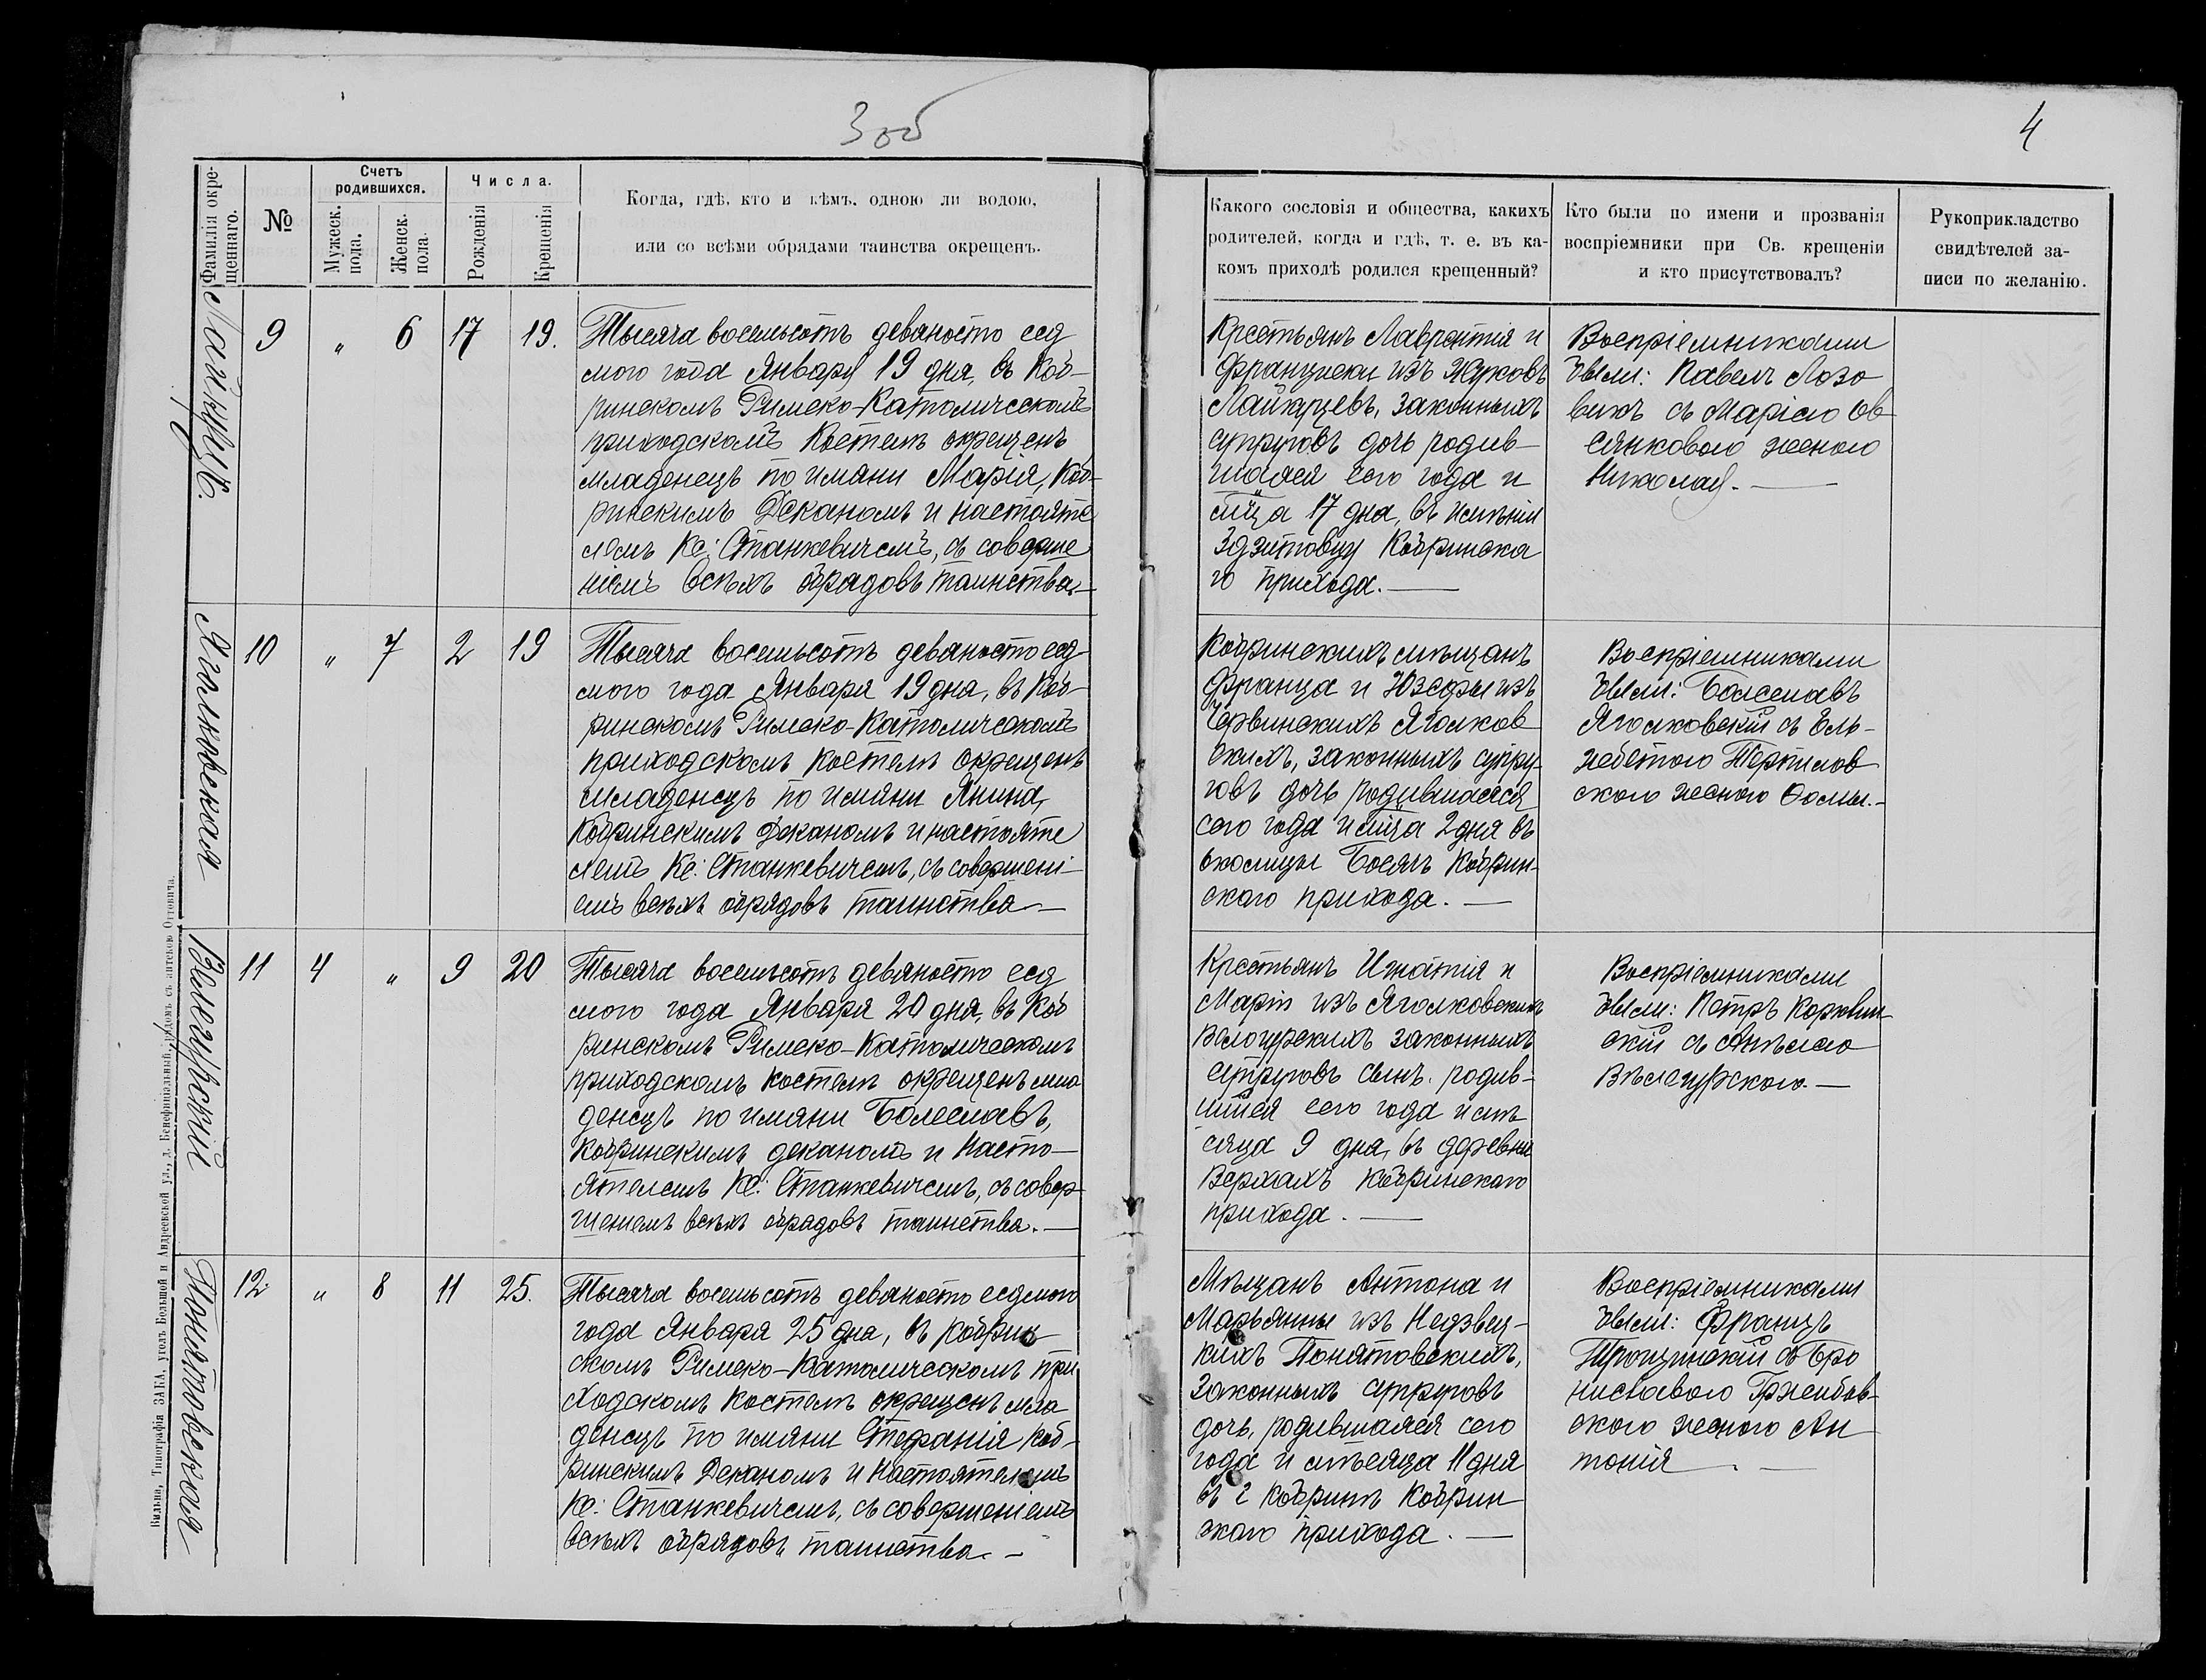 3 об
4
Фамилія окре-
щеннаго.
№
Счетъ
родившихся.
Мужеск.
пола.
Женск.
пола.
Числа.
Рожденія
Крещенія
Когда, гдѣ, кто и кѣмъ, одною ли водою,
или со всѣми обрядами таинства окрещенъ.
Какого сословія и общества, какихъ
родителей, когда и гдѣ, т. е. въ ка-
комъ приходѣ родился крещенный?
Кто были по имени и прозванія
воспріемники при Св. крещеніи
и кто присутствовалъ?
Рукоприкладство
свидѣтелей за-
писи по желанію.
9 „ 6 17 19.
Тысяча восемьсотъ девяносто сед
мого года Января 19 дня, въ Коб-
ринскомъ Римско-Католическомъ
приходскомъ Костелѣ окрещенъ
младенецъ по имяни Марія, Коб-
ринскимъ Деканомъ и настояте
лемъ Кс: Станкевичемъ, съ соверше
ніемъ всѣхъ обрядовъ таинства.—
Крестьянъ Лаврентія и
Франциски изъ Жуковъ
законныхъ
супруговъ дочь родив-
шаяся сего года и
м̃ца 17 дня, въ имѣніи
Здзитовцу Кобринска
го прихода.—
Воспріемниками
были: Павелъ Лозо
викъ съ Маріею Ов
сянковою женою
Николая.—
Яголковская
10 „ 7 2 19
Тысяча восемьсотъ девяносто сед
мого года Января 19 дня, въ Коб-
ринскомъ Римско-Католическомъ
приходскомъ Костелѣ окрещенъ
младенецъ по имяни Янина,
Кобринскимъ Деканомъ и настояте
лемъ Кс: Станкевичемъ, съ совершені-
емъ всѣхъ обрядовъ таинства—
Кобринскихъ мѣщанъ
Франца и Юзефы изъ
Червинскихъ Яголков
скихъ, законныхъ супру-
говъ дочь родившаяся
сего года и м̃ца 2 дня въ
околицы Босячъ Кобрин-
скаго прихода.—
Воспріемниками
были: Болеславъ
Яголковскій съ Ель-
жбетою
скою женою Ѳомы.—
Велегурскій
11 4 „ 9 20
Тысяча восемьсотъ девяносто сед
мого года Января 20 дня, въ Коб
ринскомъ Римско-Католическомъ
приходскомъ костелѣ окрещенъ мла
денецъ по имяни Болеславъ,
Кобринскимъ деканомъ и Насто-
ятелемъ Кс: Станкевичемъ, съ совер-
шеніемъ всѣхъ обрядовъ таинства.—
Крестьянъ Игнатія и
Маріи изъ Яголковскихъ
законныхъ
супруговъ сынъ, родив-
шійся сего года и мѣ
сяца 9 дня, въ деревни
Верхахъ Кобринскаго
прихода.—
Воспріемниками
были: Петръ
скій съ Анѣлею
Понятовская
12. „ 8 11 25.
Тысяча восемьсотъ девяносто седмого
года Января 25 дня, въ Кобрин-
скомъ Римско-Католическомъ при
ходскомъ Костелѣ окрещенъ мла
денецъ по имяни Стефанія Коб-
ринскимъ Деканомъ и Настоятелемъ
Кс: Станкевичемъ, съ совершеніемъ
всѣхъ обрядовъ таинства.—
Мѣщанъ Антона и
Марьянны изъ Недзвец-
кихъ Понятовскихъ,
законныхъ супруговъ
дочь, родившаяся сего
года и мѣсяца 11 дня
въ г Кобринѣ Кобрин
скаго прихода.—
Воспріемниками
были: Францъ
съ Бро
ниславою Гржибов-
скою женою Ан
тонія—
Вильна, Типографія ЗАКА, уголъ Большой и Андреевской ул., д. Бенефиціальный, рядомъ съ аптекою Отовича.